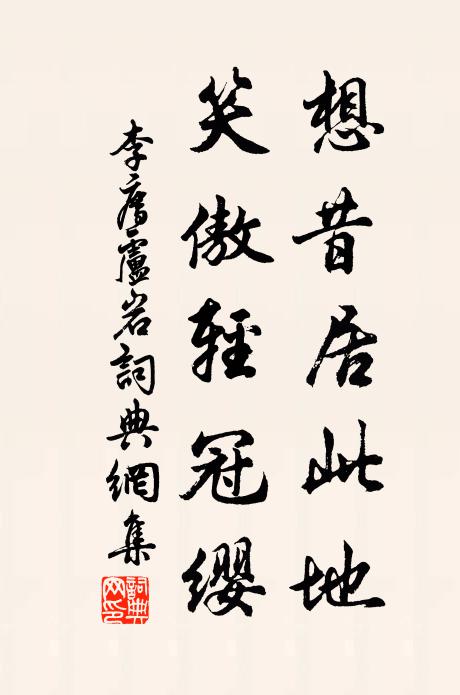 想昔居此地
笑傲輕冠纓
李廌盧岩詞典網集
詞典網印